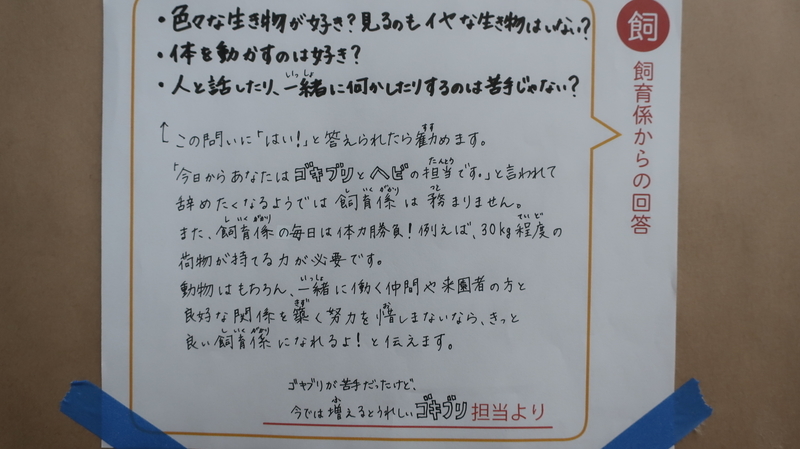 ・色々な生き物が好き?見るのもイヤな生き物はいない?
・体を動かすのは好き?
・人と話したり、一緒に何かしたりするのは苦手じゃない?
この問いに「はい!」と答えられたら勧めます。
「今日からあなたはゴキブリとヘビの担当です。」と言われて
辞めたくなるようでは飼育係は務まりません。
また、飼育係の毎日は体力勝負!例えば、30kg程度の
荷物が持てる力が必要です。
動物はもちろん、一緒に働く仲間や来園者の方と
良好な関係を築く努力を惜しまないなら、きっと
良い飼育係になれるよ!と伝えます。
ゴキブリが苦手だったけど、
今では増えるとうれしいゴキブリ担当より
飼
飼育係からの回答